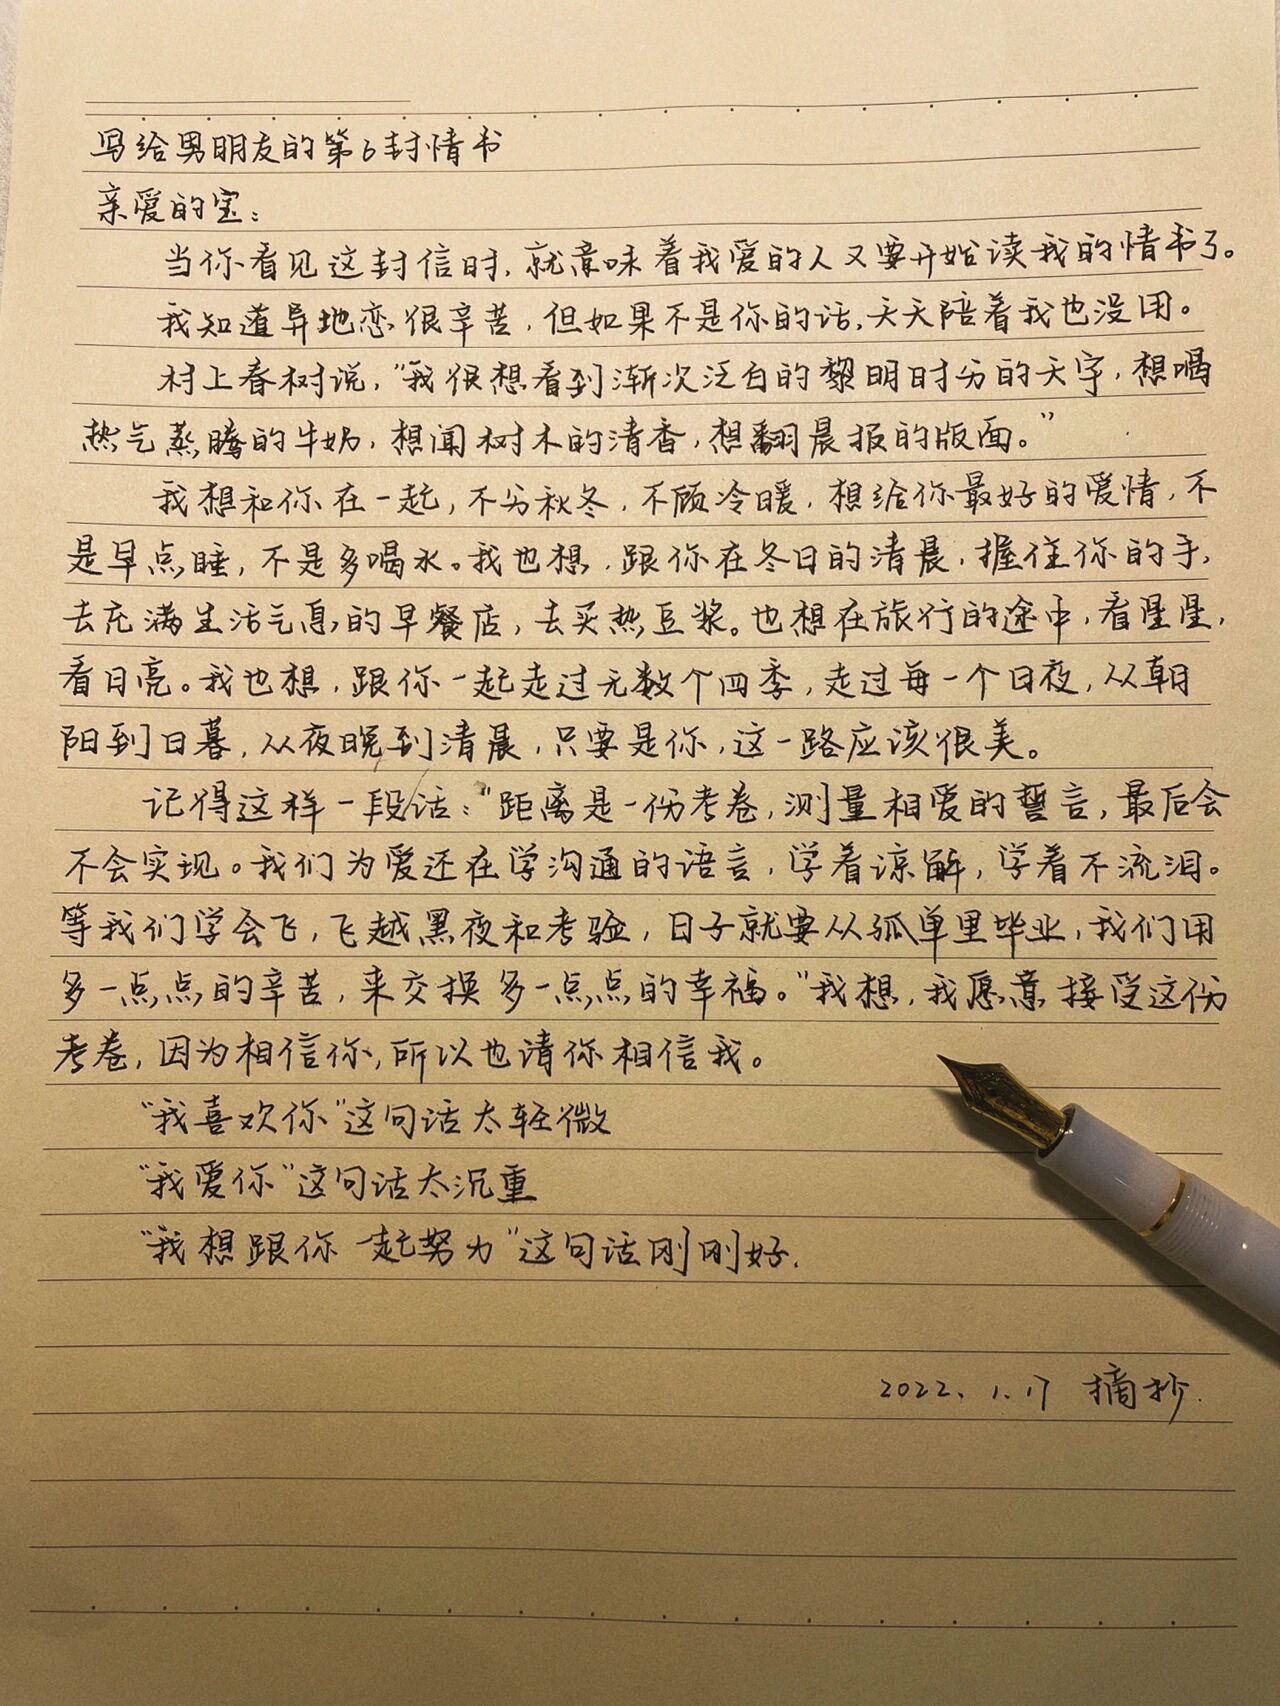 写给男朋友的第6封情书
亲爱的宝：
当你看见这封信时，就意味着我爱的人又要开始读我的情书了。
我知道异地恋很辛苦，但如果不是你的话，天天陪着我也没用。
村上春树说，“我很想看到渐次泛白的黎明时分的天宇，想喝
热气蒸腾的牛奶，想闻树木的清香，想翻晨报的版面。”
我想和你在一起，不分秋冬，不顾冷暖，想给你最好的爱情，不
是早点睡，不是多喝水。我也想，跟你在冬日的清晨，握住你的手，
去充满生活气息的早餐店，去买热豆浆。也想在旅行的途中，看星星，
看月亮。我也想，跟你一起走过无数个四季，走过每一个日夜，从朝
阳到日暮，从夜晚到清晨，只要是你，这一路应该很美。
记得这样一段话：“距离是一份考卷，测量相爱的誓言，最后会
不会实现。我们为爱还在学沟通的语言，学着谅解，学着不流泪。
等我们学会飞，飞越黑夜和考验，日子就要从孤单里毕业，我们用
多一点点的辛苦，来交换多一点点的幸福。”我想，我愿意接受这份
考卷，因为相信你，所以也请你相信我。
“我喜欢你”这句话太轻微
“我爱你”这句话太沉重
“我想跟你一起努力”这句话刚刚好.
2022.1.17 摘抄.